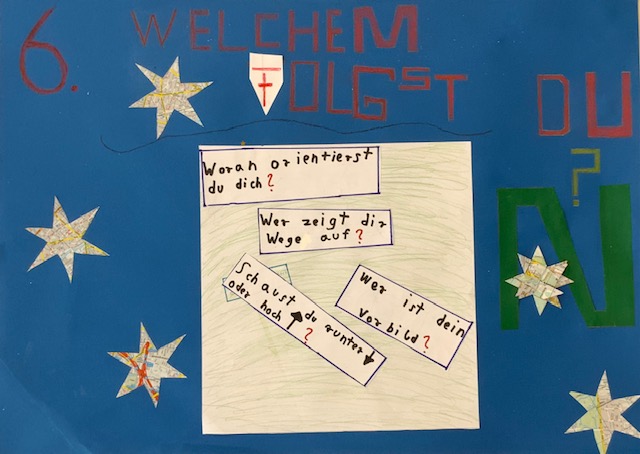 6. WELCHEM
FOLGST DU
?
N
Woran orientierst
du dich?
Wer zeigt dir
Wege auf?
Schaust du runter
oder hoch ?
Wer ist dein
Vorbild?